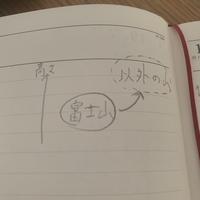 高さ
以外の山
富士山